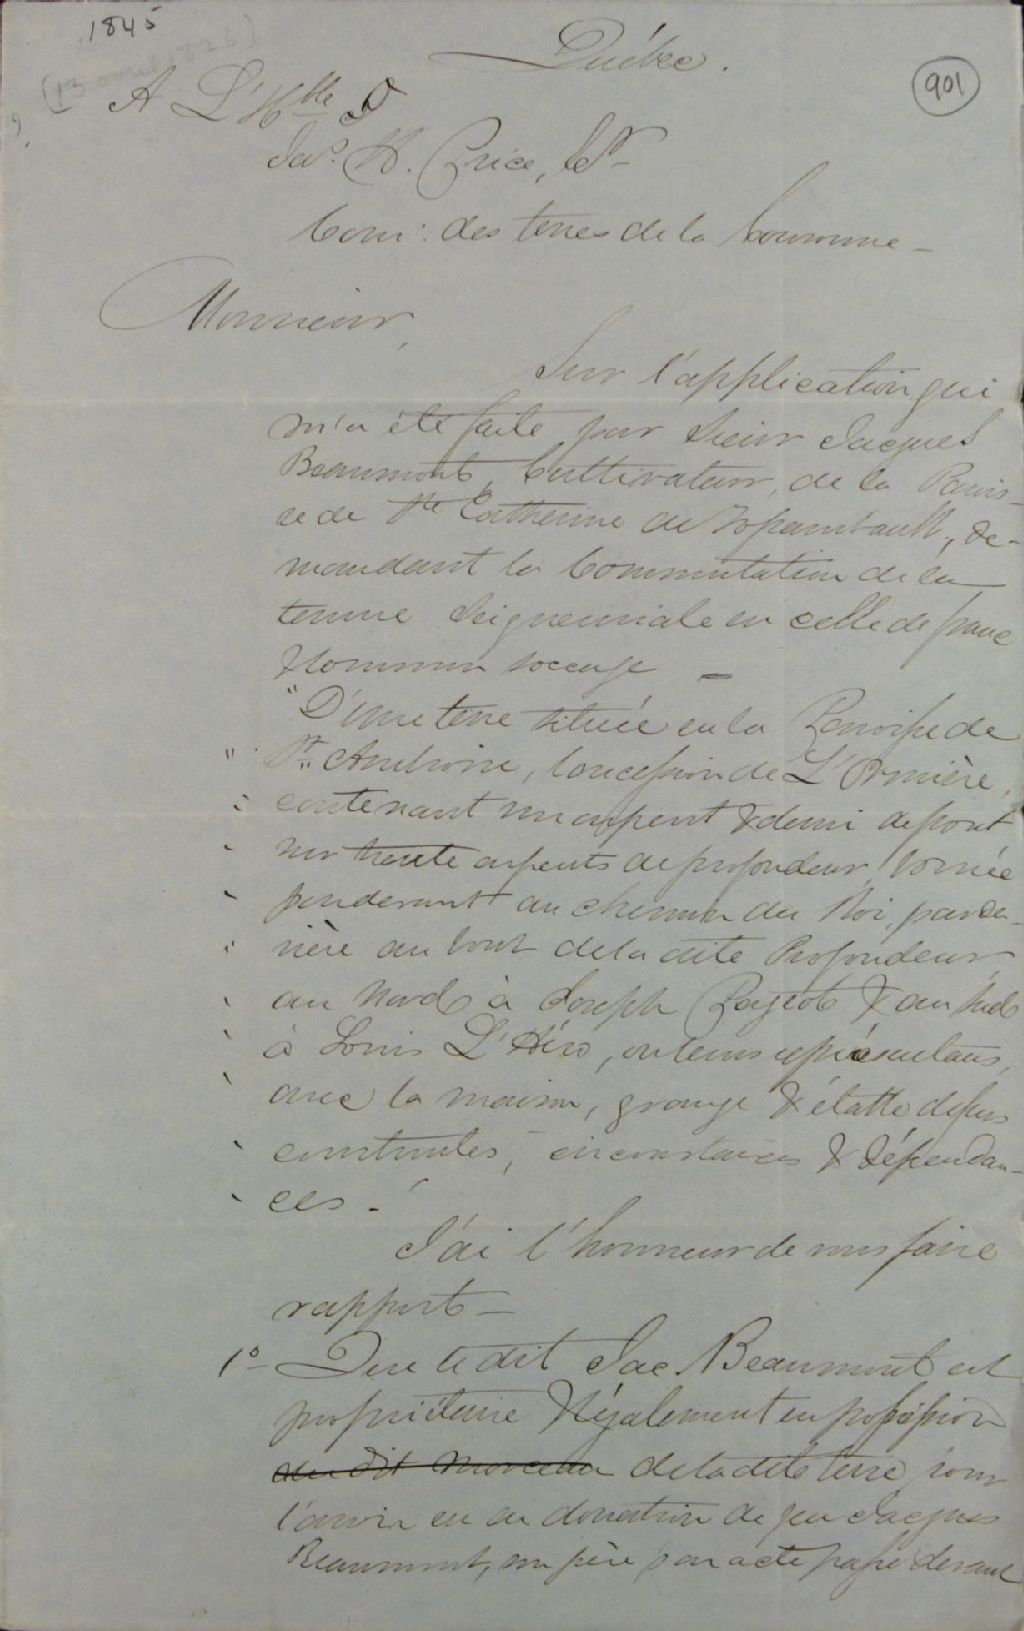 1845
Québec.
901
(13 avril 1826)
A L'Hble
Jas. H. Price,
Com: des terres de la Couronne -
Monsieur,
Sur l'application qui
m'a été faite par Sieur Jacques
Beaumont, Cultivateur, de la Parois-
se de Ste Catherine de Fossambault, de-
mandant la Commutation de la
tenure Seigneuriale en celle de franc
& commun soccage -
"D'une terre située en la Paroisse de
" St. Ambroise, Concession de L'Ormière,
contenant un arpent & demi de front
sur trente arpents de profondeur, bornée
par devant au chemin du Roi, par der-
rière au bout de la dite Profondeur
au Nord à Joseph Pageot & au Sud
à Louis L'Héro, ou leurs représentans,
avec la maison, grange & étable dessus
construites, circonstances & dépendan-
ces. -
J'ai l'honneur de vous faire
rapport -
1o - Que le dit Jac. Beaumont est
propriétaire & légalement en possession
du dit morceau de la dite terre pour
l'avoir eu en donation de feu Jacques
Beaumont, son père par acte passé devant